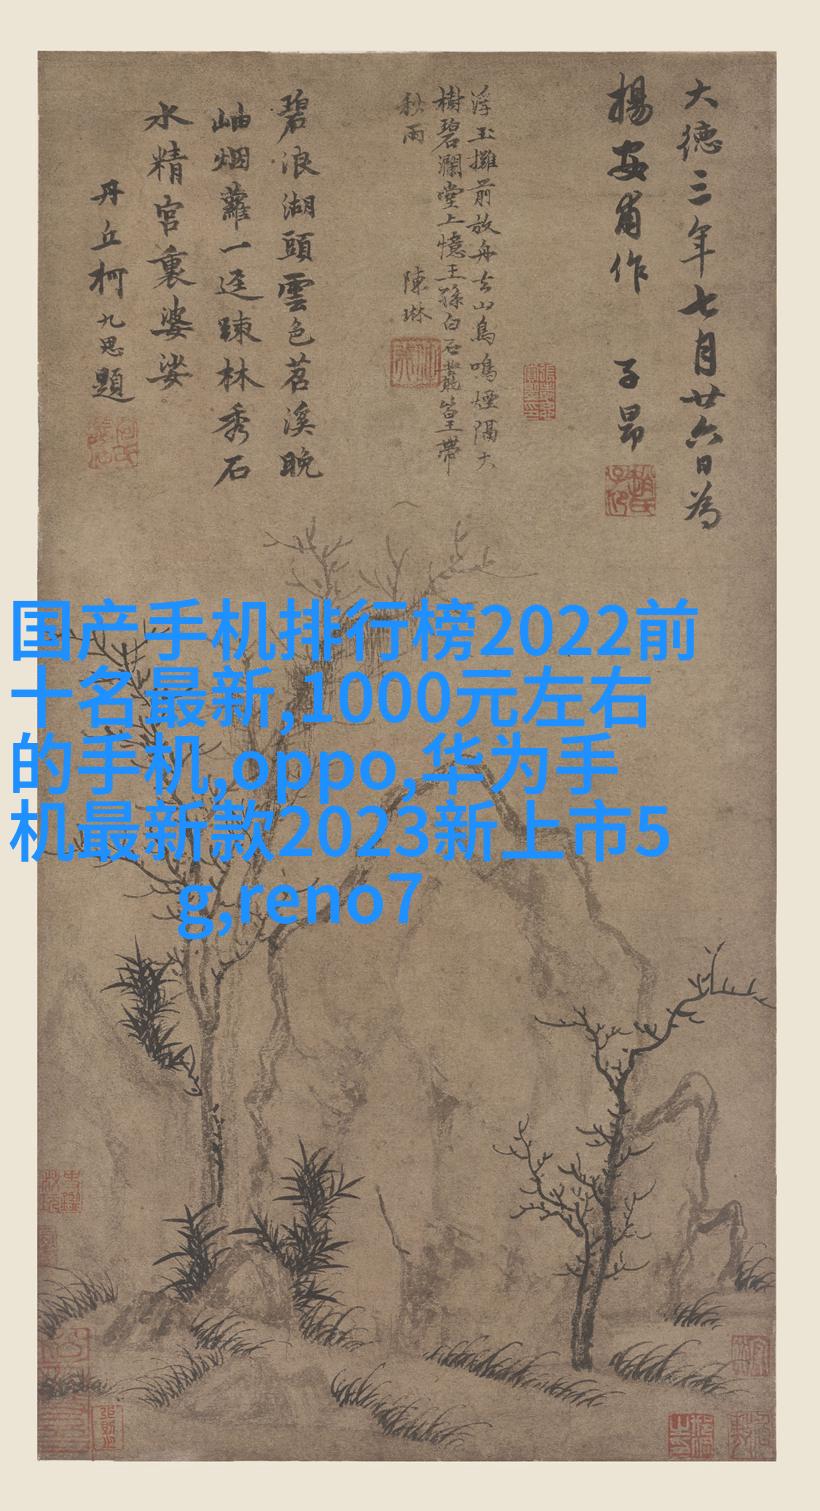 大德三年七月廿六日為
楊安甫作 子昂
浮玉攤前放舟去山鳥鳴煙隔大
樹碧瀾堂上憶王孫白石叢篁帶
秋雨 陳琳
碧浪湖頭雲色苕溪晚
岫烟蘿一逕疎林秀石
水精宮裏婆娑
丹丘柯九思題
国产手机排行榜2022前
十名最新,1000元左右
的手机,oppo,华为手
机最新款2023新上市5
g,reno7